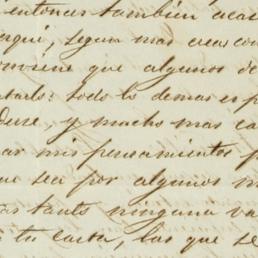 entonces tambien acas
erqui, segun mas creas con
conviene que algunos de
tarlo: todo lo demas es p
duse, y mucho mas ca
ar mis pensamientos p
ue sea por algunos m
tas tanto ninguna va
i tu carta, las que se